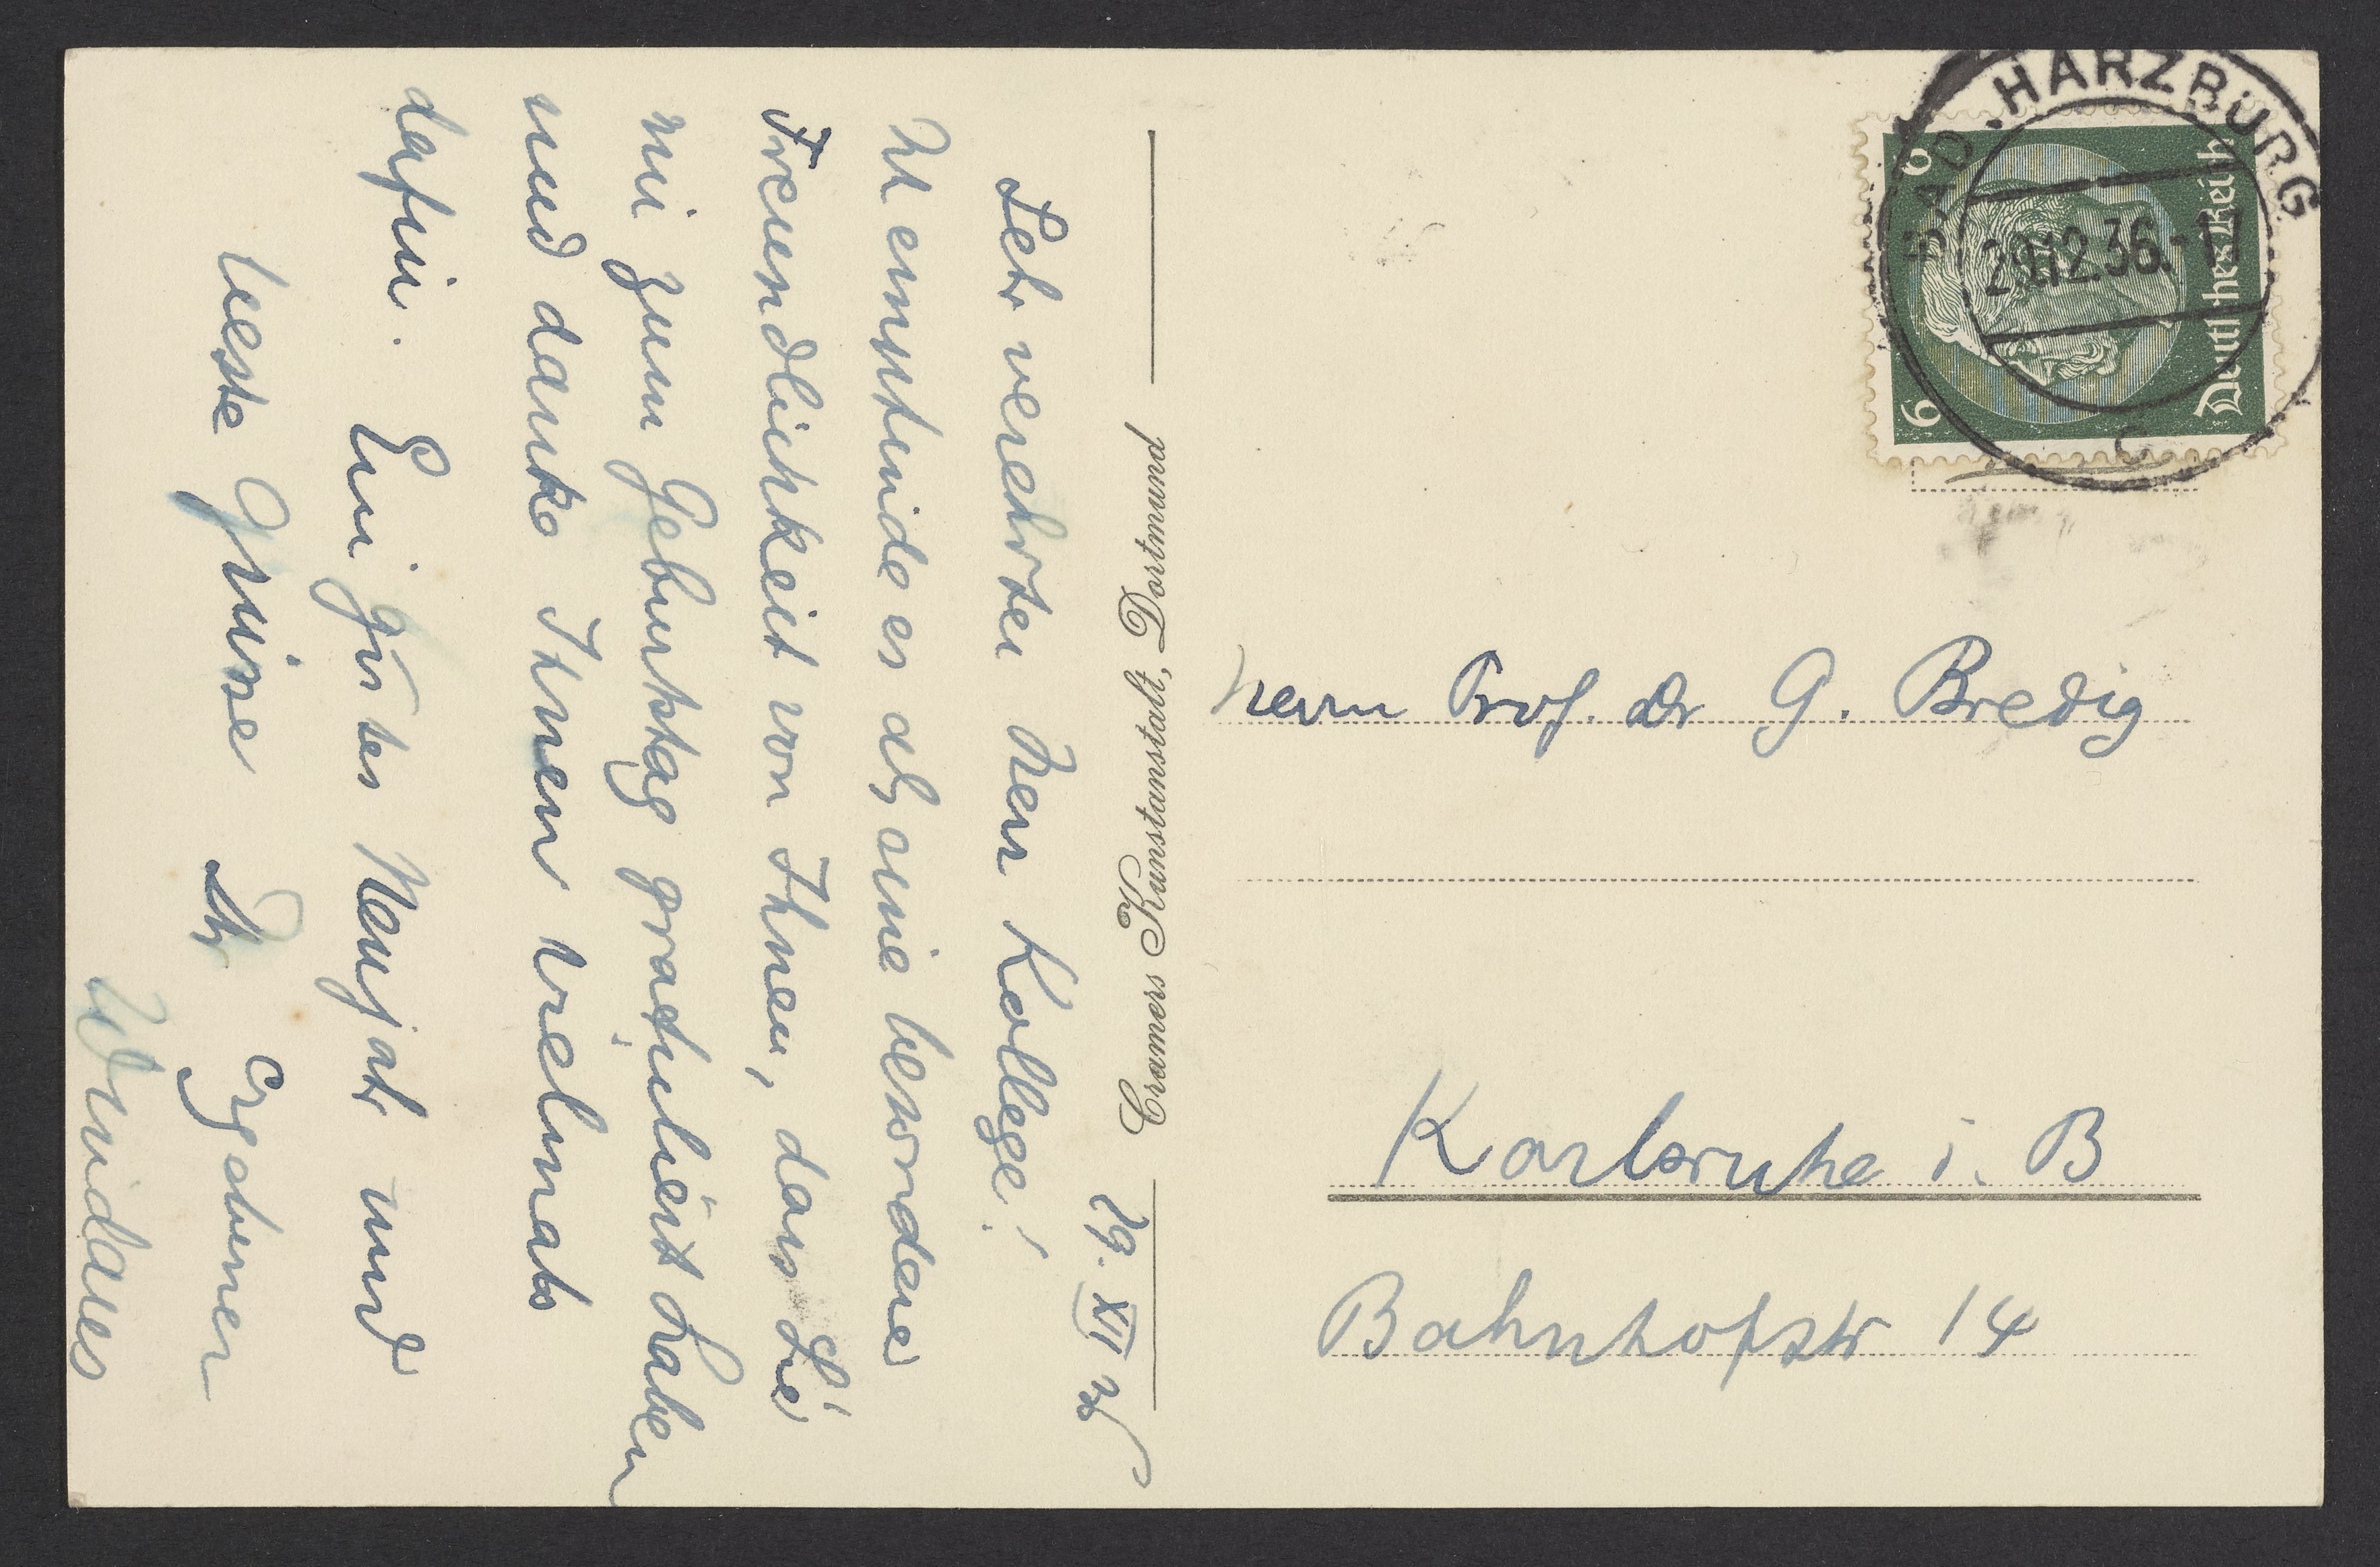 29. XII 36
Sehr verehrter Herr Kollege!
Ich empfinde es als eine besondere
Freundlichkeit von Ihnen, dass Sie
mir zum Geburtstag gratuliert haben
und danke Ihnen vielmals
dafür. Ein gutes Neujahr und
beste Grüsse Ihr ergebener
Windaus
Cramers Kunstanstalt, Dortmund
BAD HARZBURG
29.12.36.-17
c
6 6
Deutsches Reich
Herrn Prof. Dr G. Bredig
Karlsruhe i. B
Bahnhofstr 14